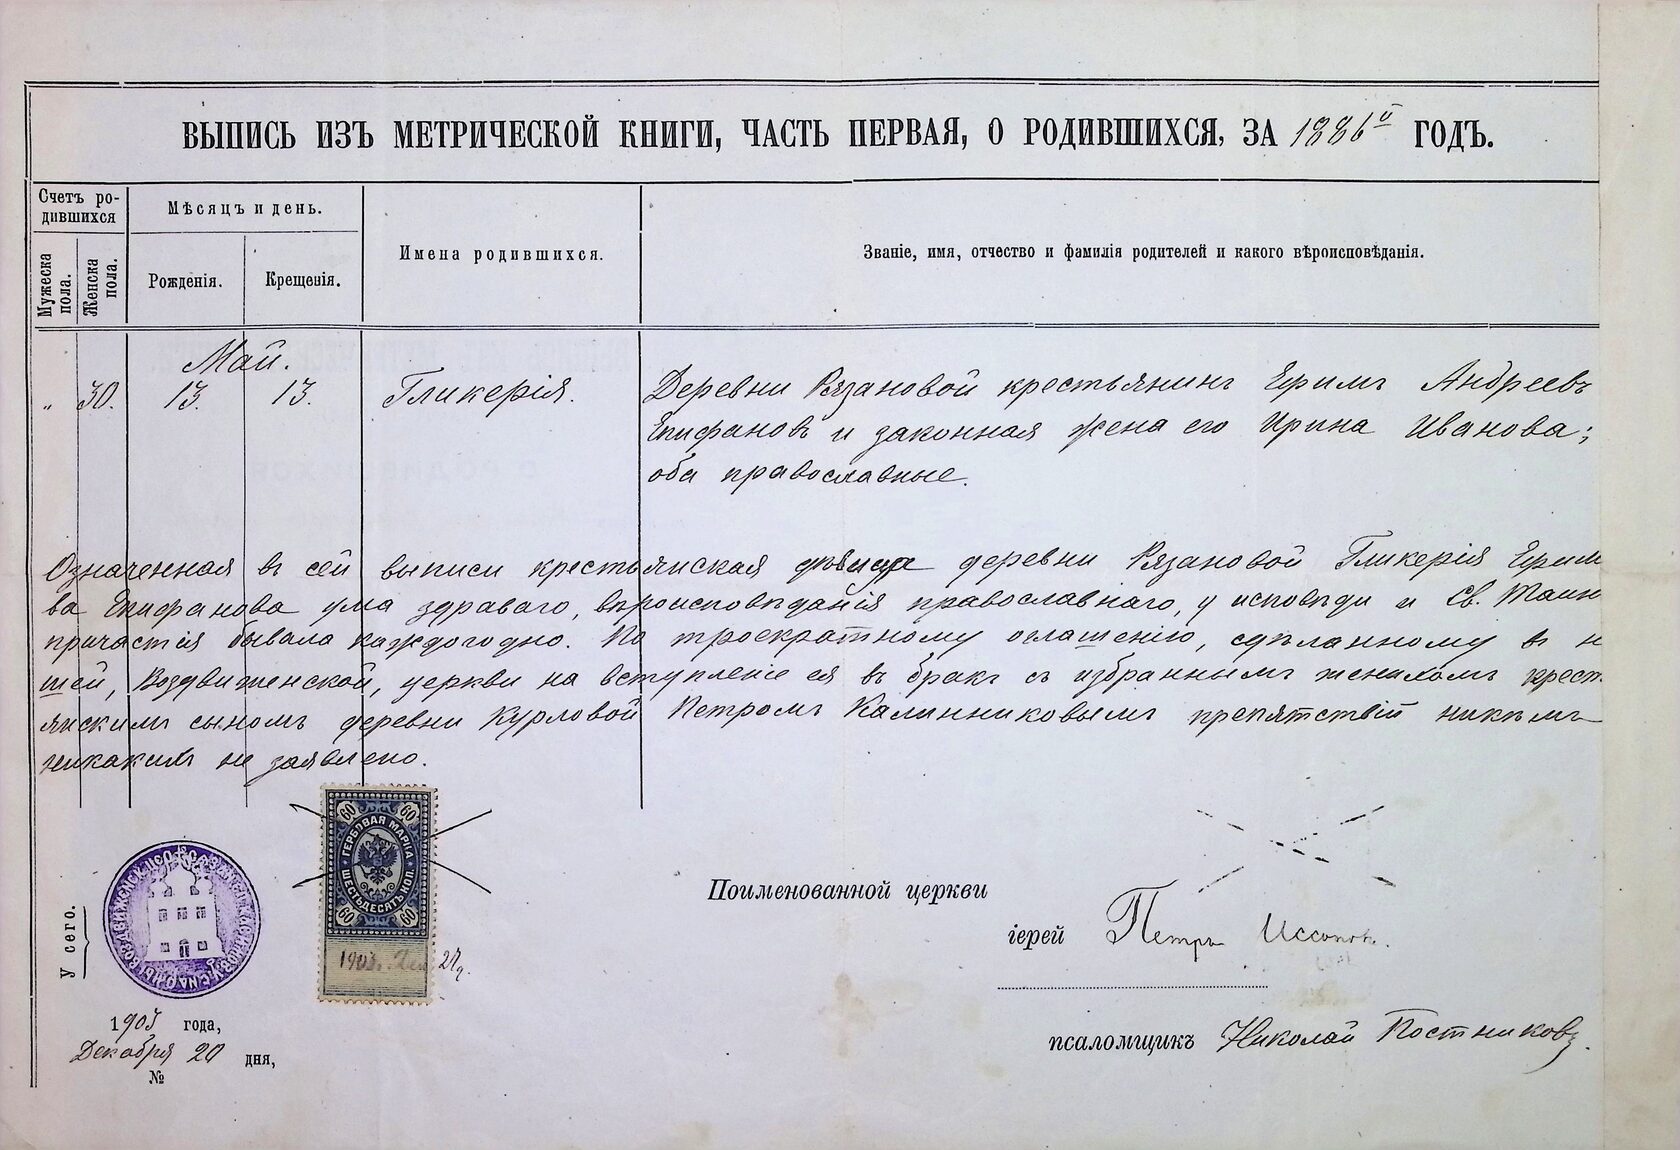 ВЫПИСЬ ИЗЪ МЕТРИЧЕСКОЙ КНИГИ, ЧАСТЬ ПЕРВАЯ, О РОДИВШИХСЯ, ЗА 1886й ГОДЪ.
Счетъ ро-
дившихся
Мужеска
пола.
Женска
пола.
Мѣсяцъ и день.
Рожденія.
Крещенія.
Имена родившихся.
Званіе, имя, отчество и фамилія родителей и какого вѣроисповѣданія.
Май.
„ 30. 13. 13. Гликерія.
Деревни Рязановой крестьянинъ Ефимъ Андреевъ
Епифановъ и законная жена его Ирина Иванова;
оба православные.
Означенная въ сей выписи крестьянская девица деревни Рязановой Гликерія Ефим
ва Епифанова ума здраваго, вѣроисповѣданія православнаго, у исповѣди и Св. Таин
причастія бывала каждогодно. По троекратному оглашенію, сдѣланному въ н
шей, Воздвиженской, церкви на вступленіе ея въ бракъ съ избраннымъ женихомъ крест
янскимъ сыномъ деревни Курловой Петромъ Калинниковымъ препятствій никѣмъ
никакихъ не заявлено.
У сего.
ГЕРБОВАЯ МАРКА
ШЕСТЬДЕСЯТЪ КОП.
60 60
60 60
Поименованной церкви
іерей Петръ
псаломщикъ Николай Постниковъ.
1905 года,
Декабря 20 дня,
№